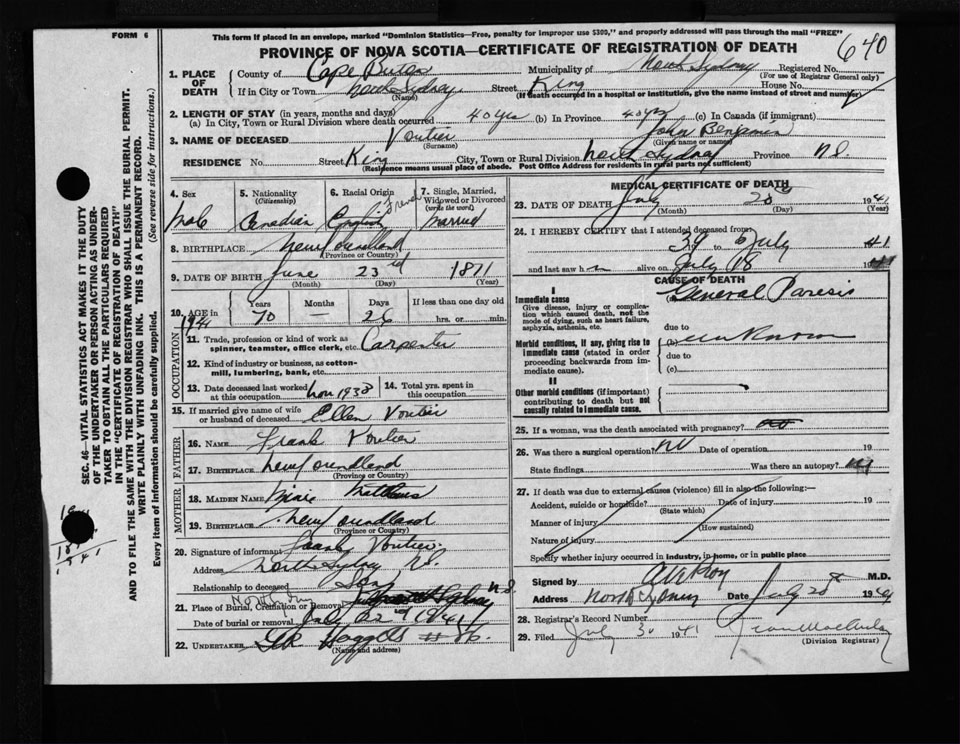 FORM 6
This form if placed in an envelope, marked "Dominion Statistics—Free, penalty for improper use $300," and properly addressed will pass through the mail "FREE"
PROVINCE OF NOVA SCOTIA—CERTIFICATE OF REGISTRATION OF DEATH
640
1. PLACE OF DEATH
County of Cape Breton Municipality of North Sydney Registered No.
(For use of Registrar General only)
If in City or Town North Sydney Street King House No.
(Name) (If death occurred in a hospital or institution, give the name instead of street and number)
2. LENGTH OF STAY (in years, months and days)
(a) In City, Town or Rural Division where death occurred 40 yrs (b) In Province 40 yrs (c) In Canada (if immigrant)
3. NAME OF DECEASED Voutier John Benjamin
(Surname) (Given name or names)
RESIDENCE No. Street King City, Town or Rural Division North Sydney Province N.S.
(Residence means usual place of abode. Post Office Address for residents in rural parts not sufficient)
4. Sex
male
5. Nationality (Citizenship)
Canadian
6. Racial Origin
English French
7. Single, Married, Widowed or Divorced (write the word)
married
8. BIRTHPLACE Newfoundland
(Province or Country)
9. DATE OF BIRTH June 23rd 1871
(Month) (Day) (Year)
10. AGE in 1941
Years Months Days If less than one day old
70 — 26 hrs. or min.
OCCUPATION
11. Trade, profession or kind of work as spinner, teamster, office clerk, etc. Carpenter
12. Kind of industry or business, as cotton-mill, lumbering, bank, etc.
13. Date deceased last worked at this occupation Nov 1938
14. Total yrs. spent in this occupation
15. If married give name of wife or husband of deceased Ellen Voutier
FATHER
16. NAME Frank Voutier
17. BIRTHPLACE Newfoundland
(Province or Country)
MOTHER
18. MAIDEN NAME
19. BIRTHPLACE Newfoundland
(Province or Country)
20. Signature of informant Voutier
Address North Sydney N.S.
Relationship to deceased Son
21. Place of Burial, Cremation or Removal North Sydney N.S.
Date of burial or removal July 22nd 1941
22. UNDERTAKER #36.
(Name and address)
MEDICAL CERTIFICATE OF DEATH
23. DATE OF DEATH July 20 1941
(Month) (Day) (Year)
24. I HEREBY CERTIFY that I attended deceased from:
39 to July 41
and last saw h m alive on July 18 1941
CAUSE OF DEATH
I
Immediate cause
Give disease, injury or complication which caused death, not the mode of dying, such as heart failure, asphyxia, asthenia, etc.
(a) General Paresis
due to
Morbid conditions, if any, giving rise to immediate cause (stated in order proceeding backwards from immediate cause).
(b) unknown
due to
(c)
II
Other morbid conditions (if important) contributing to death but not causally related to immediate cause.
25. If a woman, was the death associated with pregnancy?
26. Was there a surgical operation? no Date of operation 19
State findings Was there an autopsy? no
27. If death was due to external causes (violence) fill in also the following:—
Accident, suicide or homicide? Date of injury 19
(State which)
Manner of injury
(How sustained)
Nature of injury
Specify whether injury occurred in industry, in home, or in public place
Signed by M.D.
Address North Sydney Date July 20 1941
28. Registrar's Record Number
29. Filed July 30 1941
(Division Registrar)
SEC. 46—VITAL STATISTICS ACT MAKES IT THE DUTY
OF THE UNDERTAKER OR PERSON ACTING AS UNDER-
TAKER TO OBTAIN ALL THE PARTICULARS REQUIRED
IN THE "CERTIFICATE OF REGISTRATION OF DEATH"
AND TO FILE THE SAME WITH THE DIVISION REGISTRAR WHO SHALL ISSUE THE BURIAL PERMIT.
WRITE PLAINLY WITH UNFADING INK. THIS IS A PERMANENT RECORD.
Every item of Information should be carefully supplied. (See reverse side for instructions.)